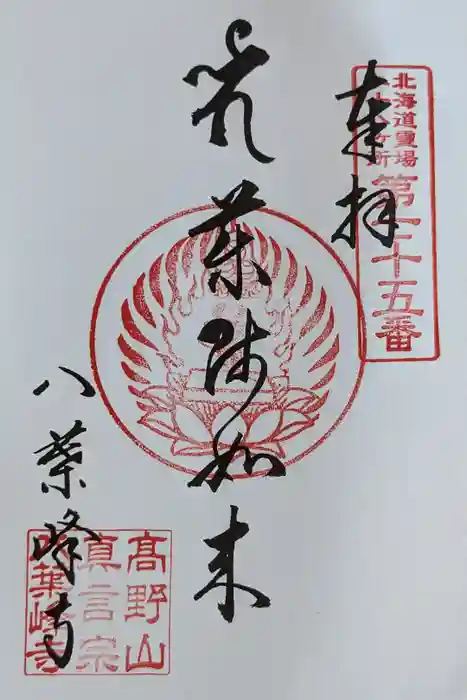 奉拝
北海道靈場
八十八ヶ所
第二十五番
薬師如来
八葉峰寺
髙野山
真言宗
八葉峰寺